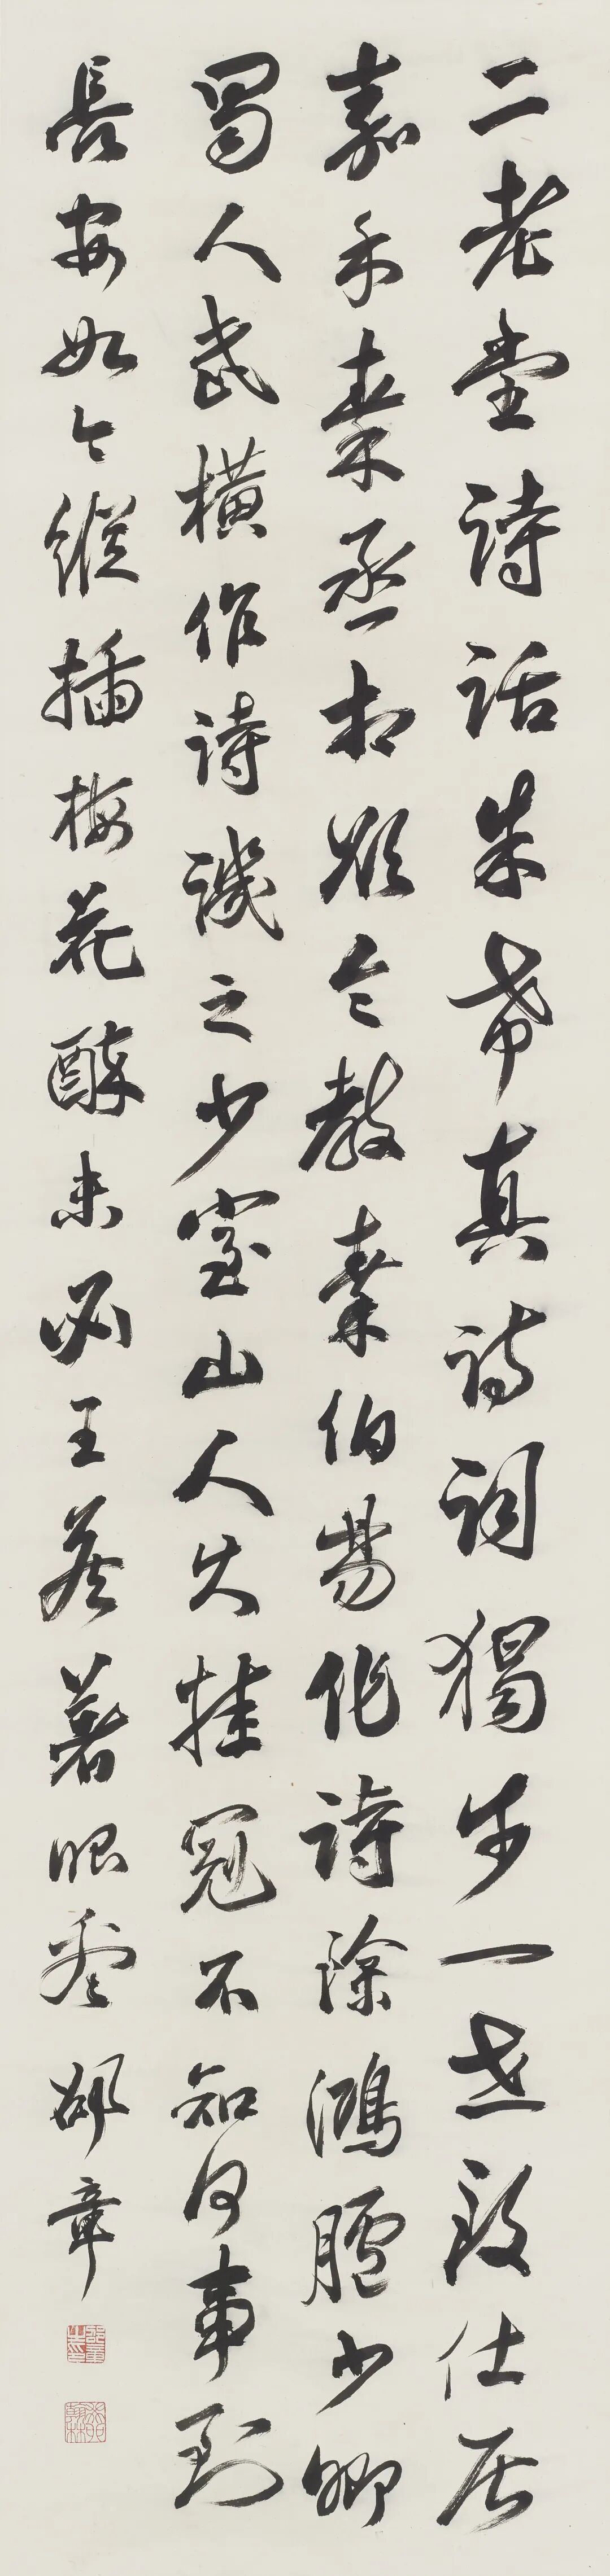 二老堂詩話朱希真詩詞獨步一世致仕居
嘉禾秦丞相欲令教秦伯陽作詩除鴻臚少卿
蜀人武橫作詩譏之少室山人久挂冠不知何事到
長安如今縱插梅花醉未必王侯著眼看 邵章